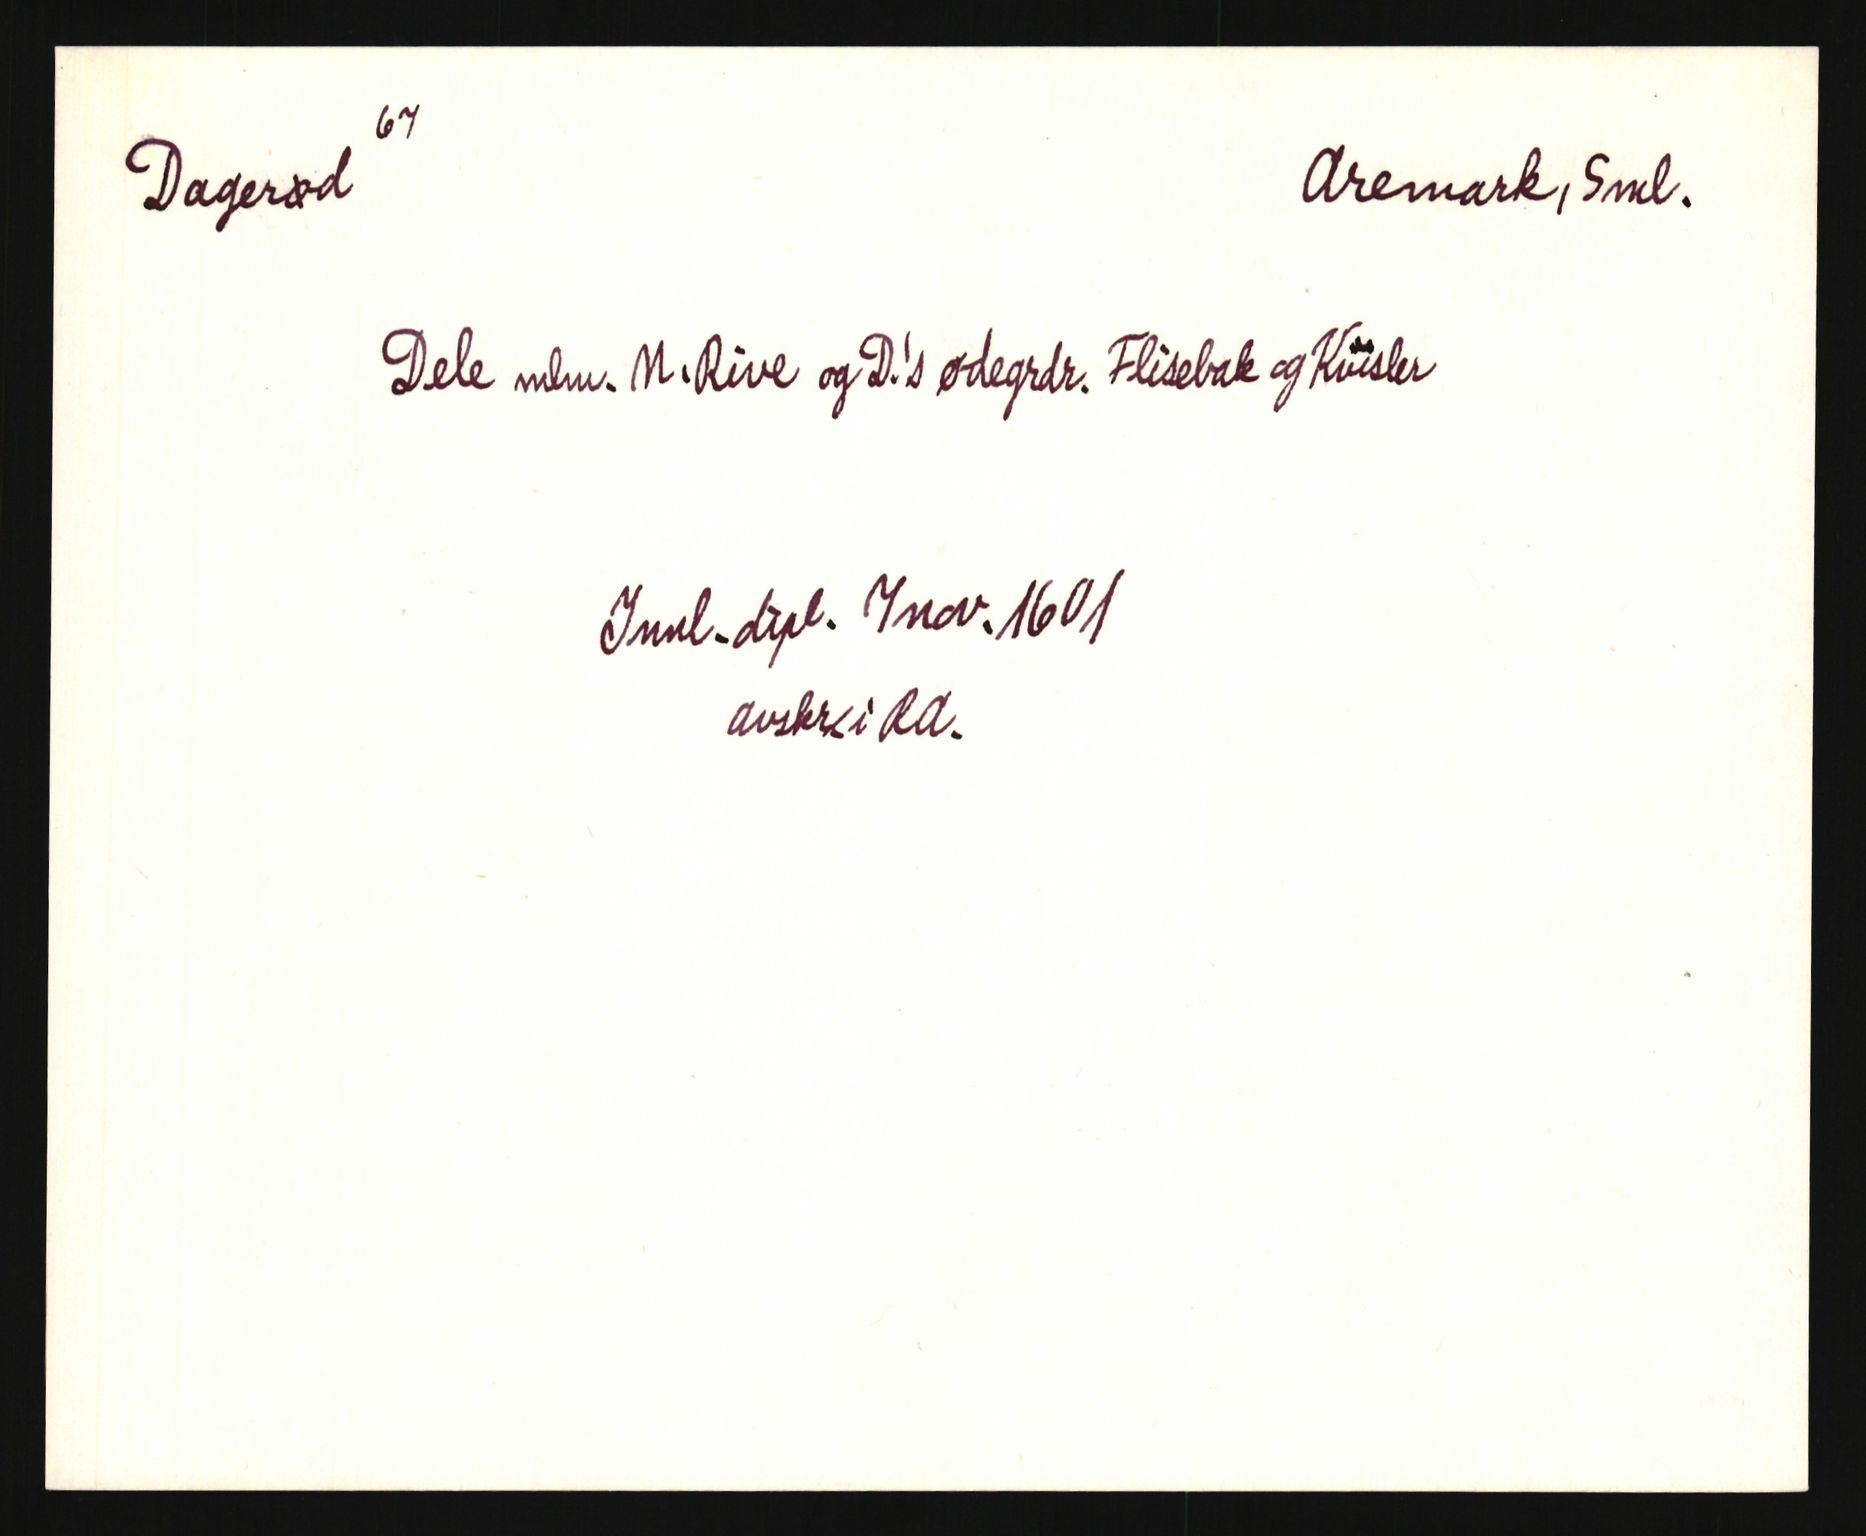 Dagerød 67
Aremark, Sml.
Dele mlm. N. Rive og D.'s ødegrdr. Flisebak og Kvisler
Innl. dipl. 7 nov. 1601
avskr. i RA.